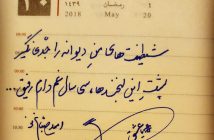 ۱ رمضان ۱۴۳۹
2018 May 20
شیطنت‌های منِ دیوانه را جدّی نگیر
پشتِ این لبخندها، سی سال غم دارم رفیق...